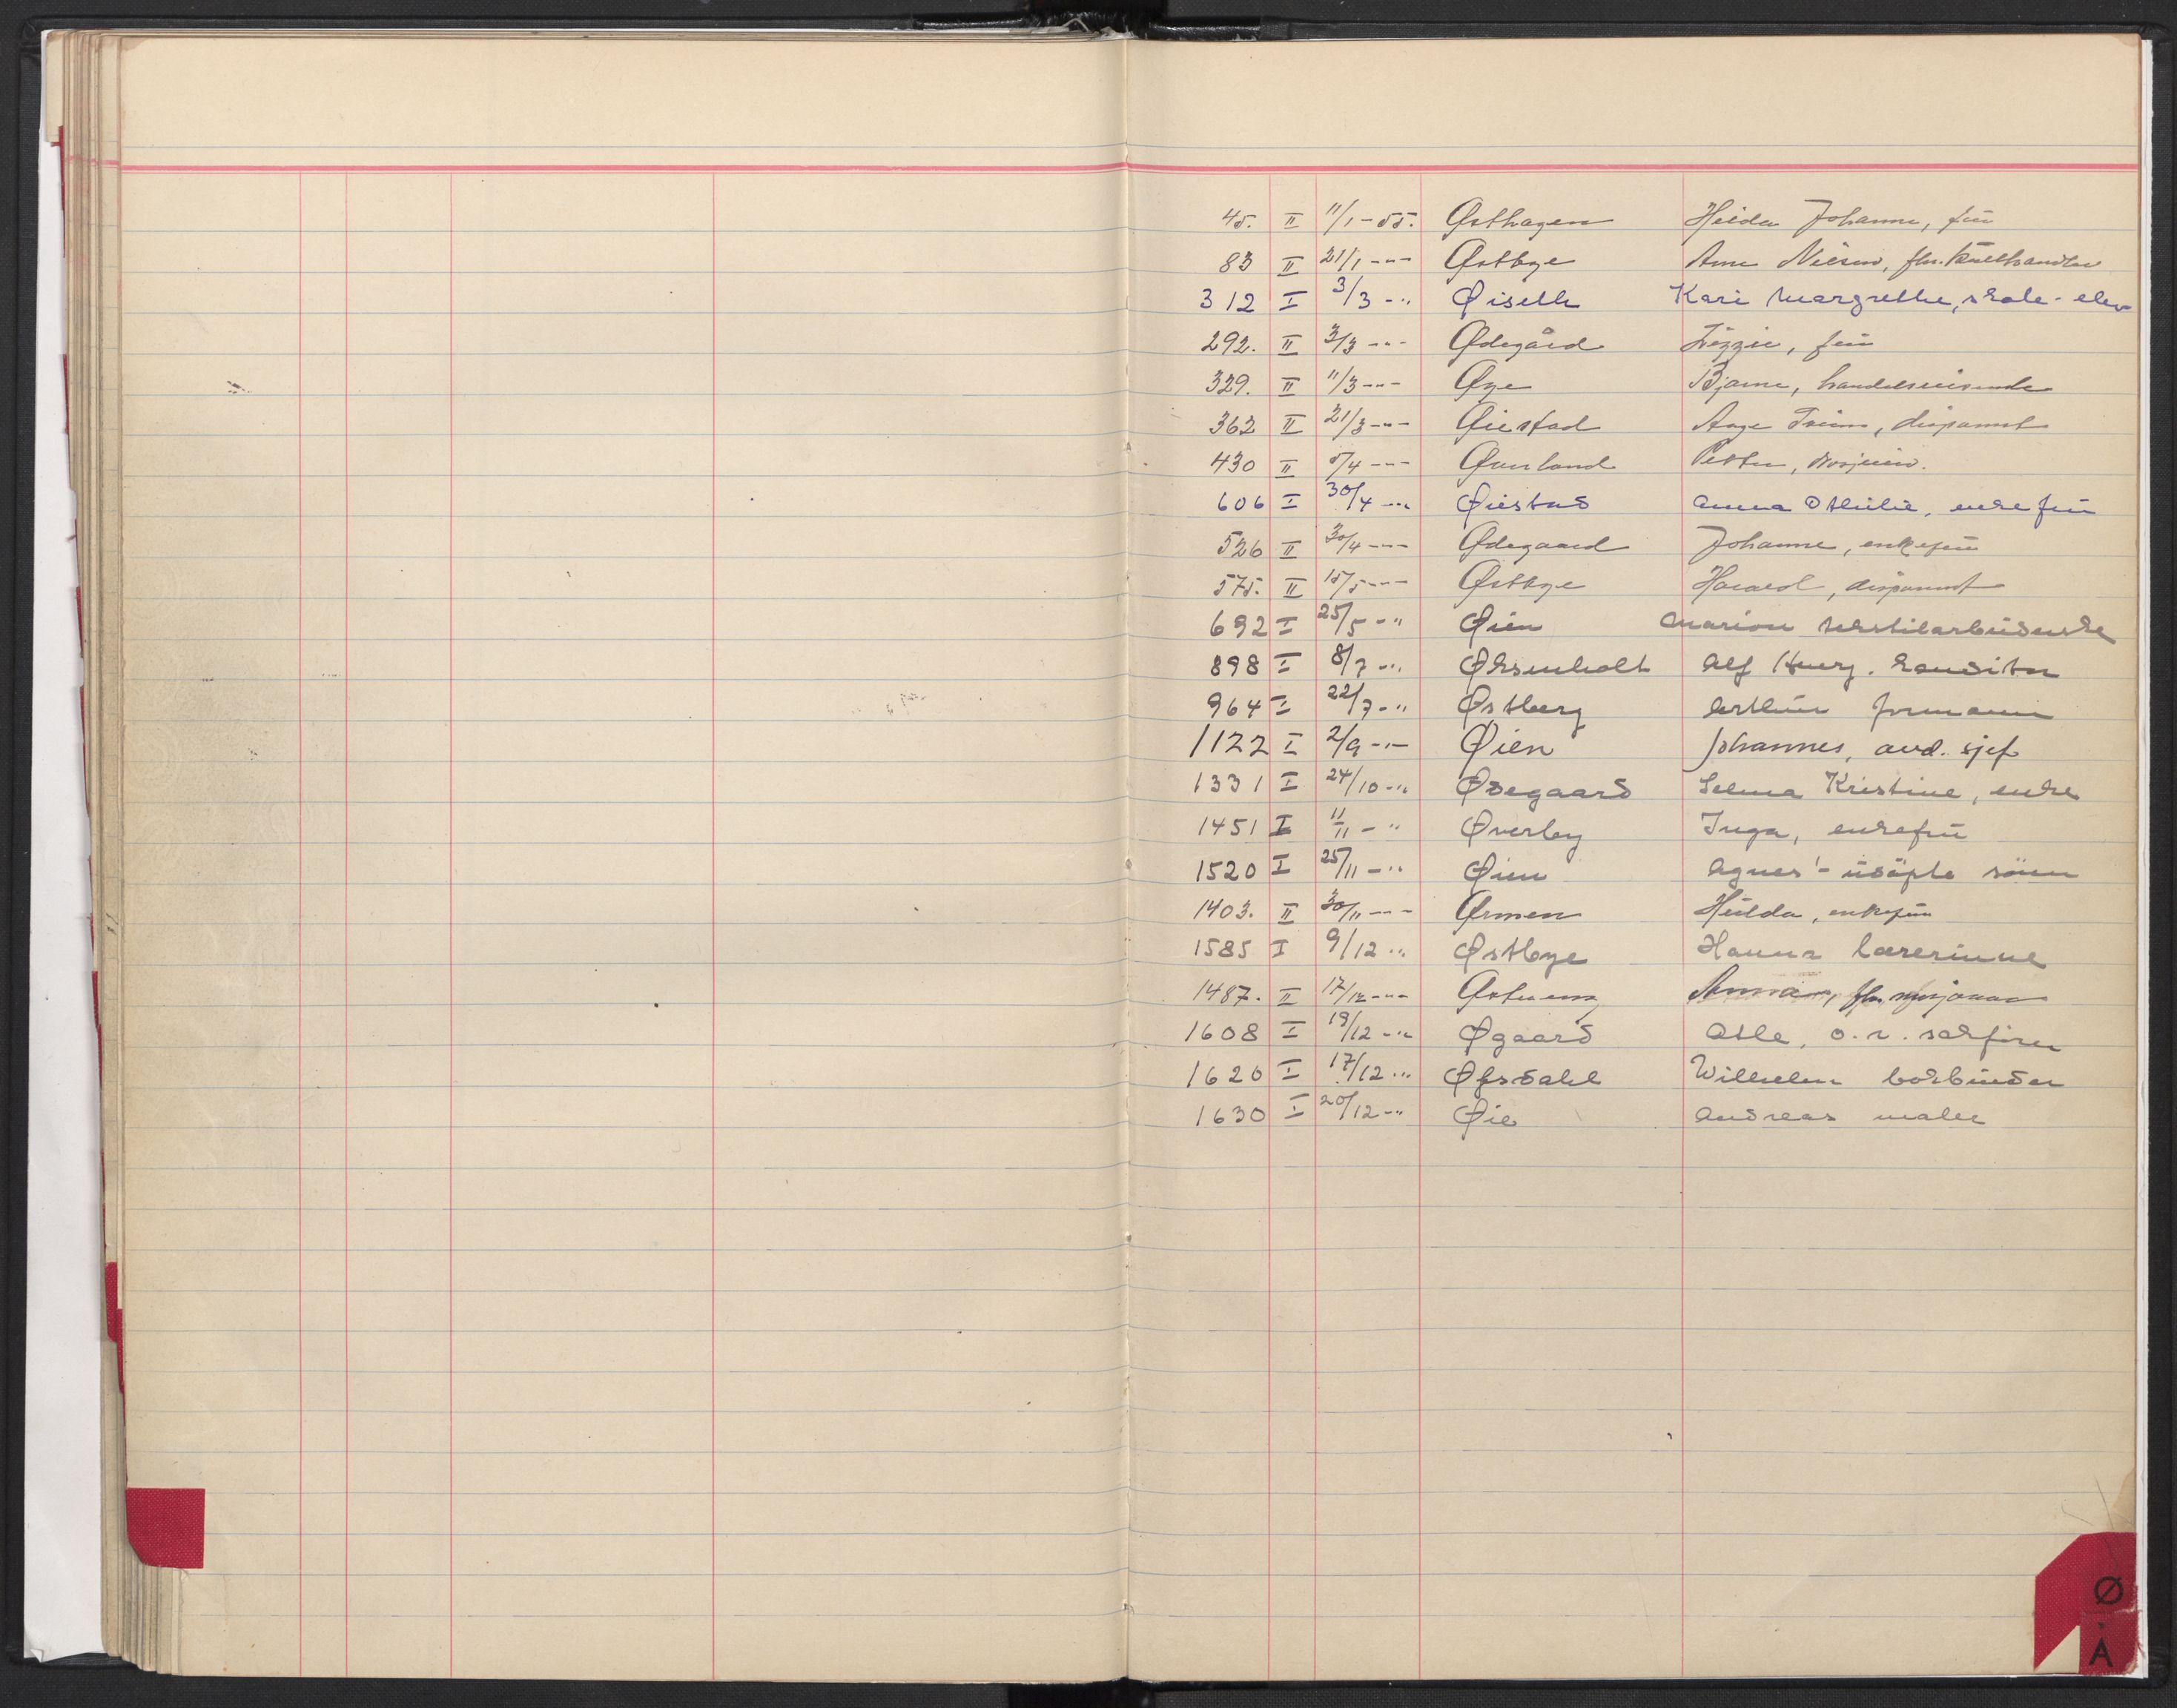 45. II 11/1-55. Østhagen Hilda Johanne, frü
83 II 21/1 -"- Østbye Arne Nilsen, fhv.
312 I 3/3 -" Øiseth Kari Margrethe, skole-elev
292. II 3/3 -"- Ødegård Lizzie, frü
329. II 11/3 -"- Øye Bjarne, handelsreisende
362 II 21/3 -"- Øiestad Aage, disponent
430 II 5/4 -"- Øverland Petter,
606 I 30/4 -"- Øiestad Anna Othilie, enkefrü
526 II 30/4 -"- Ødegaard Johanne, enkefrü
575. II 15/5 -"- Østbye Harald, disponent
692 I 25/5 -" Øien Marion tekstilarbeiderske
898 I 8/7 -" Øksenholt Alf Henry. konditor
964 I 22/7 -" Østberg Arthür formann
1122 I 2/9 -"- Øien Johannes, avd. sjef
1331 I 24/10 -" Ødegaard Selma Kristine, enke
1451 I 11/11 - " Øverby Inga, enkefrü
1520 I 25/11 -" Øien Agnes' - üdöpte sönn
1403. II 30/11 -"- Ørmen Hilda, enkefrü
1585 I 9/12 " Østbye Hanna lærerinne
1487. II 17/12 -"- Østreng Anna, fhv.
1608 I 19/12 -" Øgaard Atle, o.r. sakförer
1620 I 17/12 " Øfsdahl Wilhelm bokbinder
1630 I 20/12 -" Øie Andreas maler
Ø
Å